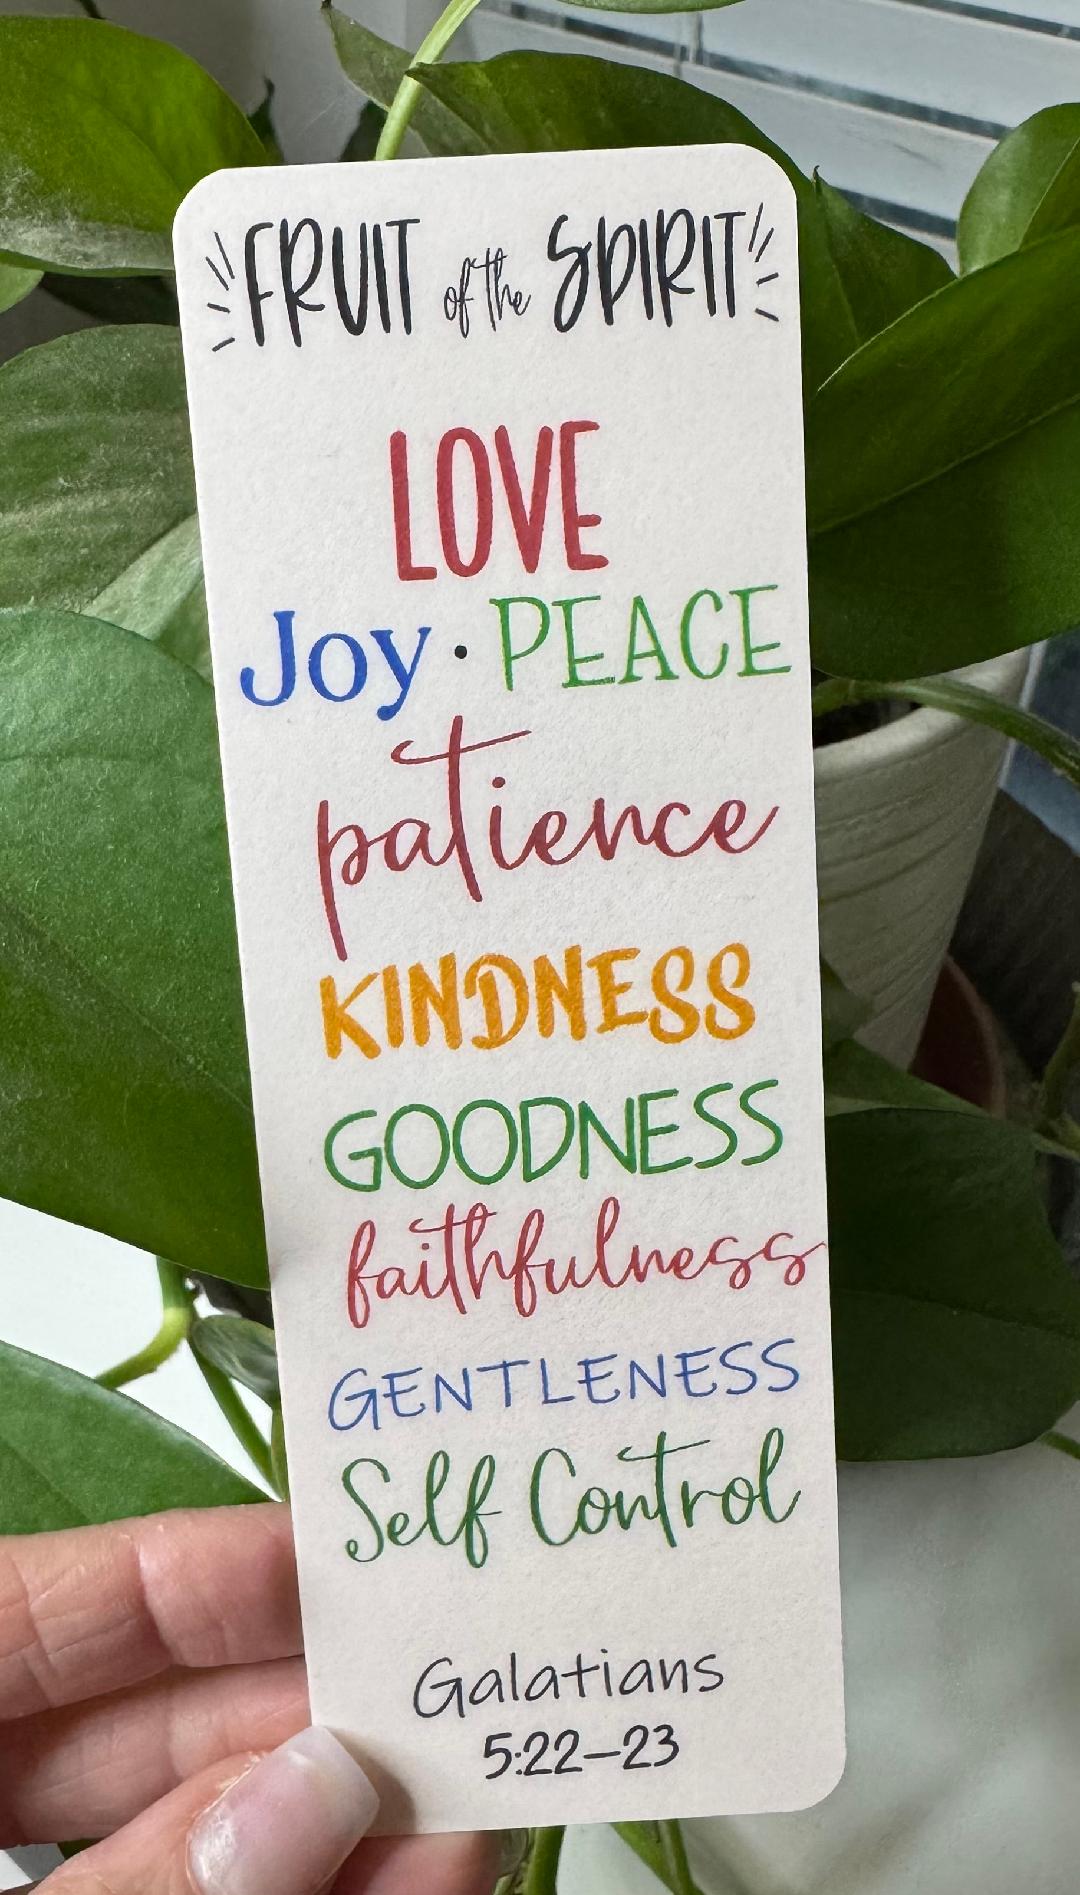 FRUIT of the SPIRIT
LOVE
Joy · PEACE
patience
KINDNESS
GOODNESS
faithfulness
GENTLENESS
Self Control
Galatians
5:22–23